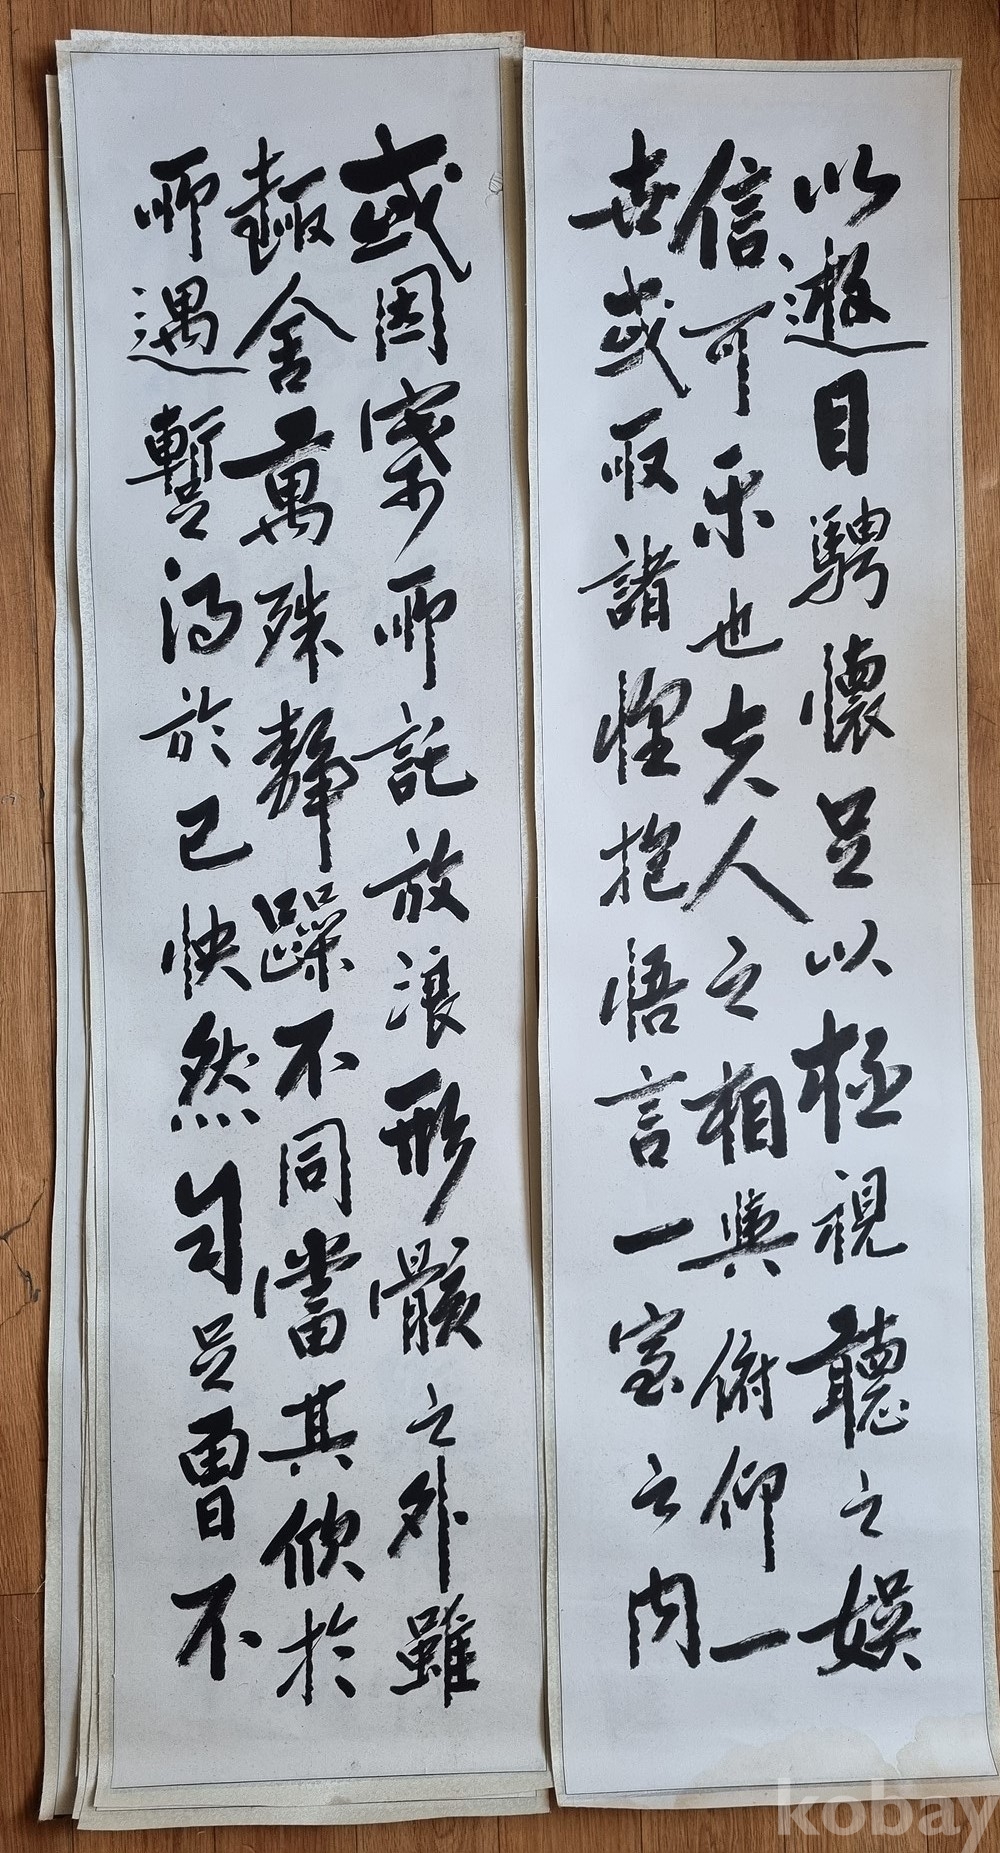 以遊目騁懷足以極視聽之娛
信可樂也夫人之相與俯仰一
世或取諸懷抱悟言一室之內
或因寄所託放浪形骸之外雖
趣舍萬殊靜躁不同當其欣於
所遇暫得於己快然自足曾不
kobay